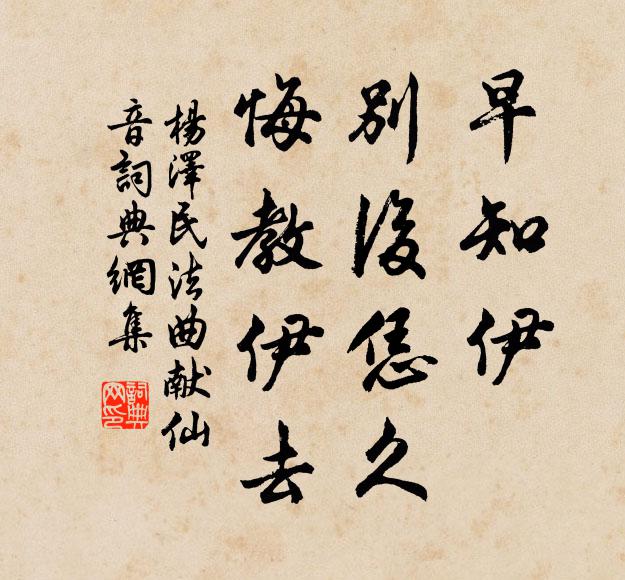 早知伊
別後恁久
悔教伊去
楊澤民法曲献仙
音詞典網集
詞典
网印